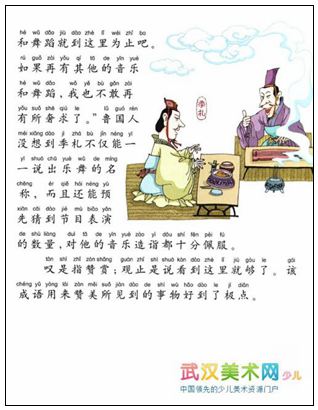 hé wǔ dǎo jiù dào zhè lǐ wéi zhǐ ba
和舞蹈就到这里为止吧。
rú guǒ zài yǒu qí tā de yīn yuè
如果再有其他的音乐
hé wǔ dǎo wǒ yě bù gǎn zài
和舞蹈，我也不敢再
yǒu suǒ shē qiú le lǔ guó rén
有所奢求了。”鲁国人
季札
méi xiǎng dào jì zhá bù jǐn néng yī
没想到季札不仅能一
yī shuō chū yuè wǔ de míng
一说出乐舞的名
chēng ér qiě hái néng yù
称，而且还能预
xiān cāi dào jié mù biǎo yǎn
先猜到节目表演
de shù liàng duì tā de yīn yuè zào yì dōu shí fēn pèi fú
的数量，对他的音乐造诣都十分佩服。
tàn shì zhǐ zàn shǎng guān zhǐ shì shuō kàn dào zhè lǐ jiù gòu le gāi
叹是指赞赏；观止是说看到这里就够了。该
chéng yǔ yòng lái zàn měi suǒ jiàn dào de shì wù hǎo dào le jí diǎn
成语用来赞美所见到的事物好到了极点。
武汉美术网少儿
中国领先的少儿美术资源门户